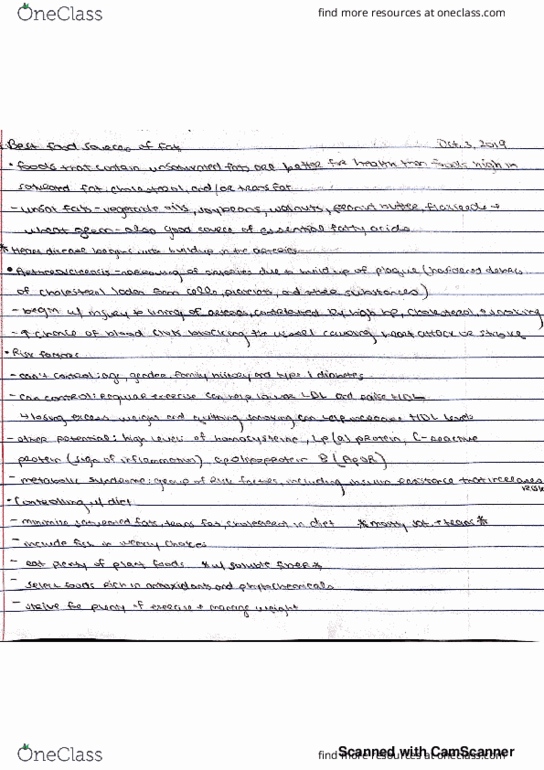 OneClass
find more resources at oneclass.com
Best food sources of fat
Oct. 3, 2019
• foods that contain unsaturated fats are better for health than foods high in
saturated fat, cholesterol, and/or trans fat
- unsat fats - vegetable oils, soybeans, walnuts, peanut butter, flaxseeds +
wheat germ - also good sources of essential fatty acids
* Heart disease begins with buildup in the arteries
• Atherosclerosis - narrowing of arteries due to build up of plaque (hardened debris
of cholesterol laden foam cells, platelets, and other substances)
- begin w/ injury to lining of arteries, accelerated by high bp, cholesterol, + smoking
- ↑ chance of blood clots blocking the vessel causing heart attack or stroke
• Risk factors
- can't control: age, gender, family history and type 1 diabetes
- can control: regular exercise can help lower LDL and raise HDL
↳ losing excess weight and quitting smoking can help increase HDL levels
- other potential: high levels of homocysteine, Lp(a) protein, C-reactive
protein (sign of inflammation), apolipoprotein B (
- metabolic syndrome: group of risk factors, including insulin resistance that increases
risk
• Controlling w/ diet
- minimize saturated fats, trans fat, cholesterol in diet * mostly sat. + trans *
- include fish in weekly choices
- eat plenty of plant foods * w/ soluble fiber *
- select foods rich in antioxidants and phytochemicals
- strive for plenty of exercise + manage weight
OneClass
find more resources at oneclass.com
Scanned with CamScanner